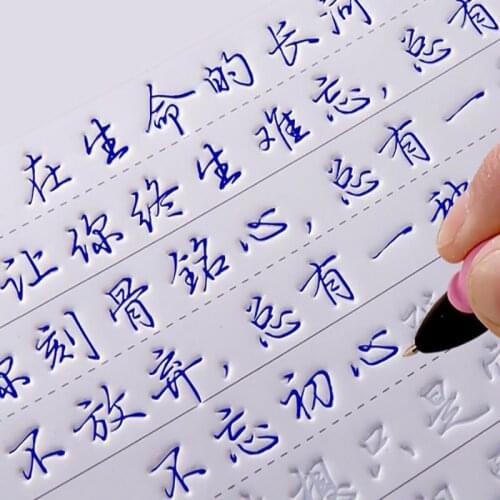 在生命的长河
让你终生难忘，总有
你刻骨铭心，总有一
不放弃，总有一种
不忘初心
只是